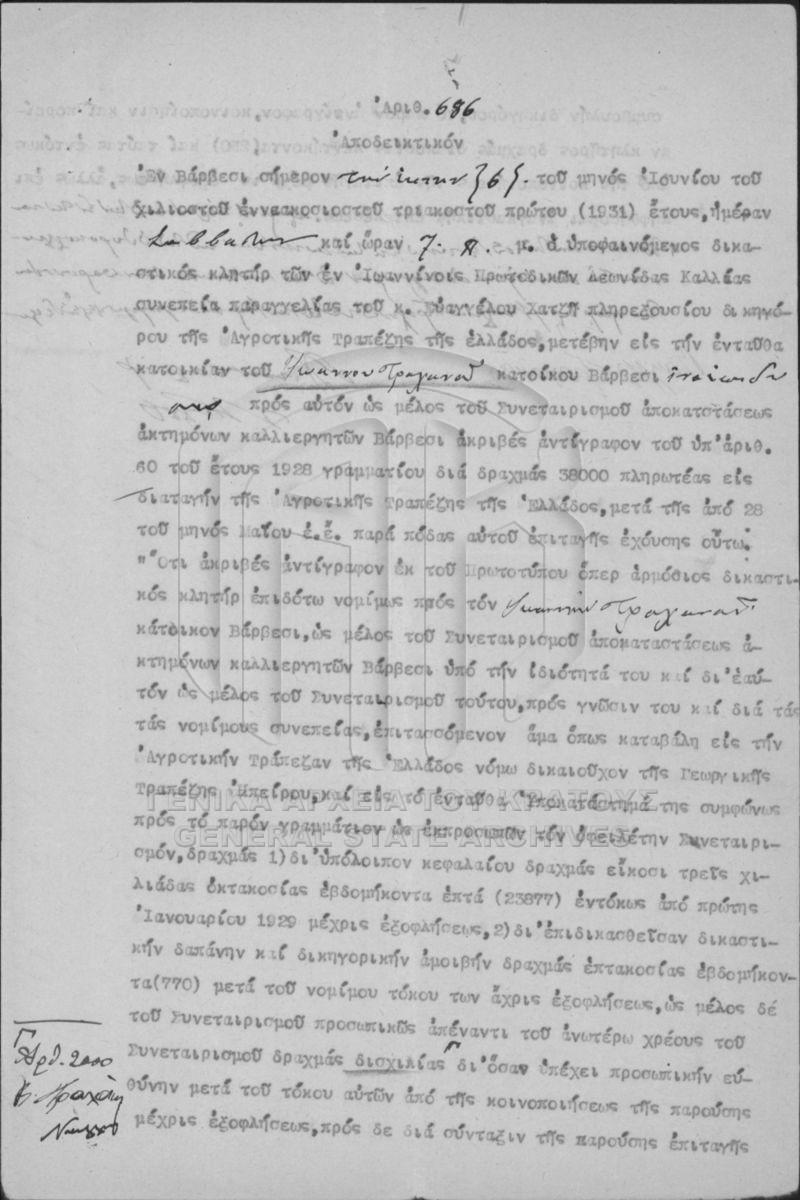 Ἀριθ. 686
Ἀποδεικτικόν
Ἐν Βάρβεσι σήμερον τήν ἕκτην (6) τοῦ μηνός Ἰουνίου τοῦ
χιλιοστοῦ ἐννεακοσιοστοῦ τριακοστοῦ πρώτου (1931) ἔτους, ἡμέραν
Σάββατον καί ὥραν 7. π. μ. ὁ ὑποφαινόμενος δικα-
στικός κλητήρ τῶν ἐν Ἰωαννίνοις Πρωτοδικῶν Λεωνίδας Καλλέας
συνεπείᾳ παραγγελίας τοῦ κ. Εὐαγγέλου Χατζῆ πληρεξουσίου δικηγό-
ρου τῆς Ἀγροτικῆς Τραπέζης τῆς Ἑλλάδος, μετέβην εἰς τήν ἐνταῦθα
κατοικίαν τοῦ Ἰωάννου κατοίκου Βάρβεσι
πρός αὐτόν ὡς μέλος τοῦ Συνεταιρισμοῦ ἀποκαταστάσεως
ἀκτημόνων καλλιεργητῶν Βάρβεσι ἀκριβές ἀντίγραφον τοῦ ὑπ' ἀριθ.
60 τοῦ ἔτους 1928 γραμματίου διά δραχμάς 38000 πληρωτέας εἰς
διαταγήν τῆς Ἀγροτικῆς Τραπέζης τῆς Ἑλλάδος, μετά τῆς ἀπό 28
τοῦ μηνός Μαΐου ἐ.ἔ. παρά πόδας αὐτοῦ ἐπιταγῆς ἐχούσης οὕτω:
"Ὅτι ἀκριβές ἀντίγραφον ἐκ τοῦ Πρωτοτύπου ὅπερ ἁρμόδιος δικαστι-
κός κλητήρ ἐπιδότω νομίμως πρός τόν Ἰωάννην
κάτοικον Βάρβεσι, ὡς μέλος τοῦ Συνεταιρισμοῦ ἀποκαταστάσεως ἀ-
κτημόνων καλλιεργητῶν Βάρβεσι ὑπό τήν ἰδιότητά του καί δι' ἑαυ-
τόν ὡς μέλος τοῦ Συνεταιρισμοῦ τούτου, πρός γνῶσιν του καί διά τάς
τάς νομίμους συνεπείας, ἐπιτασσόμενον ἅμα ὅπως καταβάλη εἰς τήν
Ἀγροτικήν Τράπεζαν τῆς Ἑλλάδος νόμω δικαιοῦχον τῆς Γεωργικῆς
Τραπέζης Ἠπείρου, καί εἰς τό ἐνταῦθα Ὑποκατάστημά της συμφώνως
ΓΕΝΙΚΑ ΑΡΧΕΙΑ ΤΟΥ ΚΡΑΤΟΥΣ
πρός τό παρόν γραμμάτιον ὡς ἐκπροσωπῶν τόν ὀφειλέτην Συνεταιρι-
GENERAL STATE ARCHIVES
σμόν, δραχμάς 1) δι' ὑπόλοιπον κεφαλαίου δραχμάς εἴκοσι τρεῖς χι-
λιάδας ὀκτακοσίας ἑβδομήκοντα ἑπτά (23877) ἐντόκως ἀπό πρώτης
Ἰανουαρίου 1929 μέχρις ἐξοφλήσεως, 2) δι' ἐπιδικασθεῖσαν δικαστι-
κήν δαπάνην καί δικηγορικήν ἀμοιβήν δραχμάς ἑπτακοσίας ἑβδομήκον-
τα(770) μετά τοῦ νομίμου τόκου των ἄχρις ἐξοφλήσεως, ὡς μέλος δέ
τοῦ Συνεταιρισμοῦ προσωπικῶς ἀπέναντι τοῦ ἀνωτέρω χρέους τοῦ
Συνεταιρισμοῦ δραχμάς δισχιλίας δι' ὅσαν ὑπέχει προσωπικήν εὐ-
θύνην μετά τοῦ τόκου αὐτῶν ἀπό τῆς κοινοποιήσεως τῆς παρούσης
μέχρις ἐξοφλήσεως, πρός δε διά σύνταξιν τῆς παρούσης ἐπιταγῆς
2000